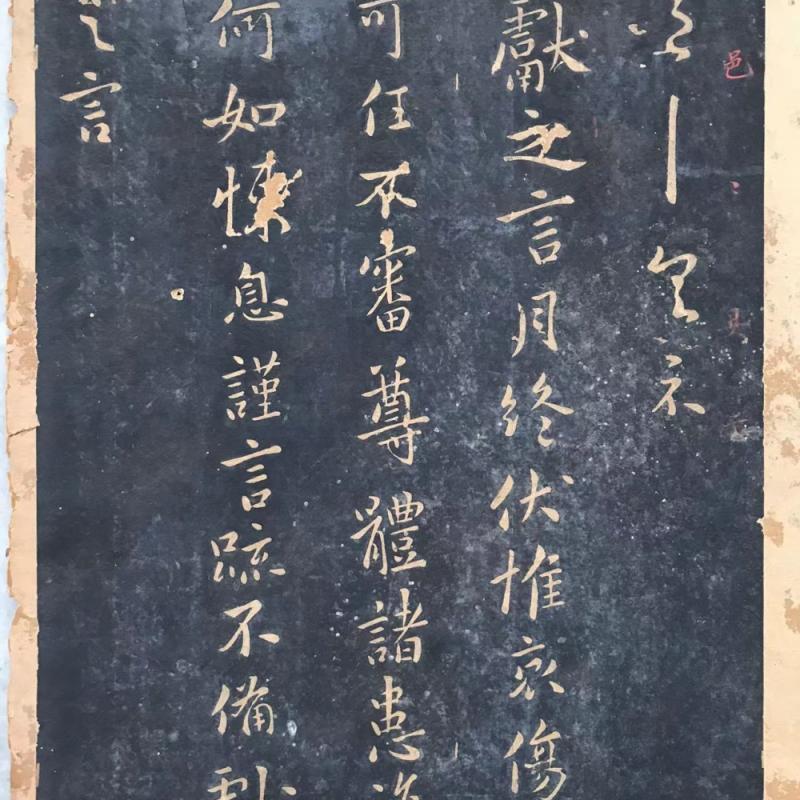 獻之言月終伏惟哀傷
可任不審尊體諸患
何如息謹言疏不備
之言